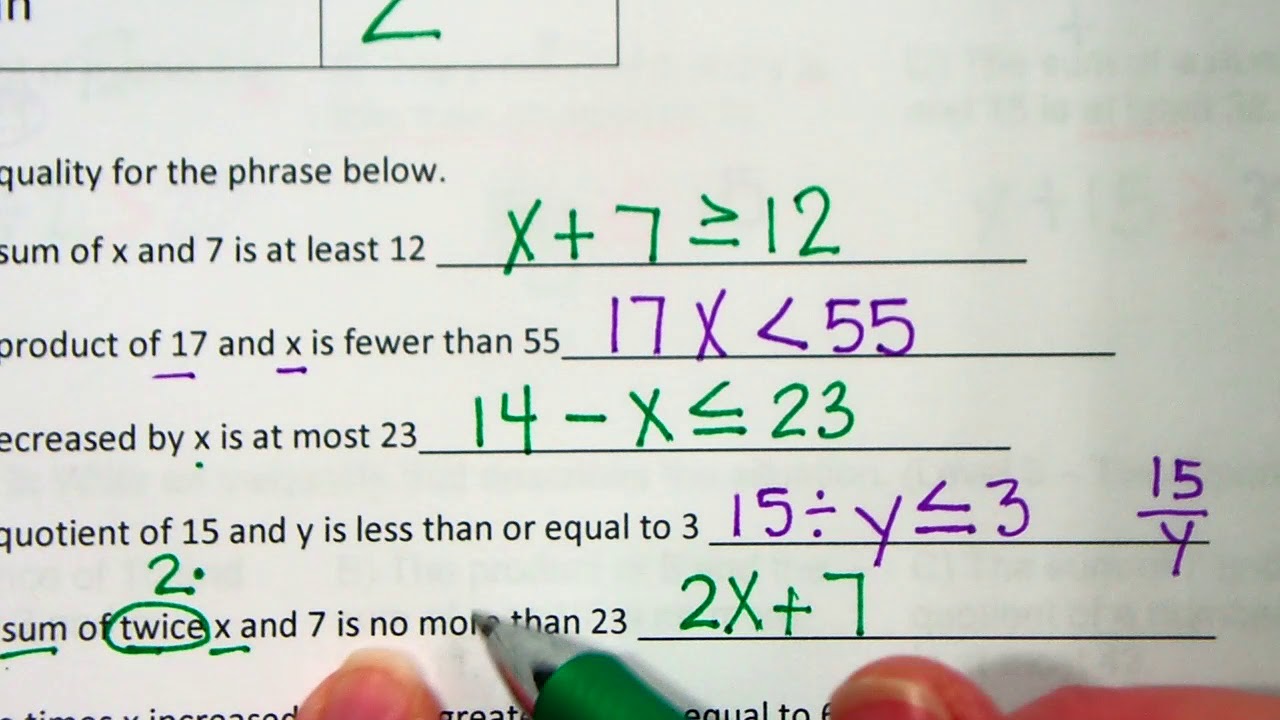 2
quality for the phrase below.
sum of x and 7 is at least 12 x + 7 ≥ 12
product of 17 and x is fewer than 55 17x < 55
ecreased by x is at most 23 14 - x ≤ 23
quotient of 15 and y is less than or equal to 3 15 ÷ y ≤ 3 15/y
2·
sum of twice x and 7 is no more than 23 2x + 7
times x increased greate equal to 6